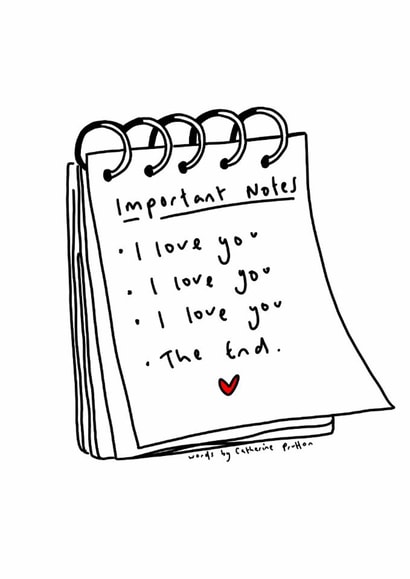 Important Notes
• I love you
• I love you
• I love you
• The End.
words by Catherine Prutton